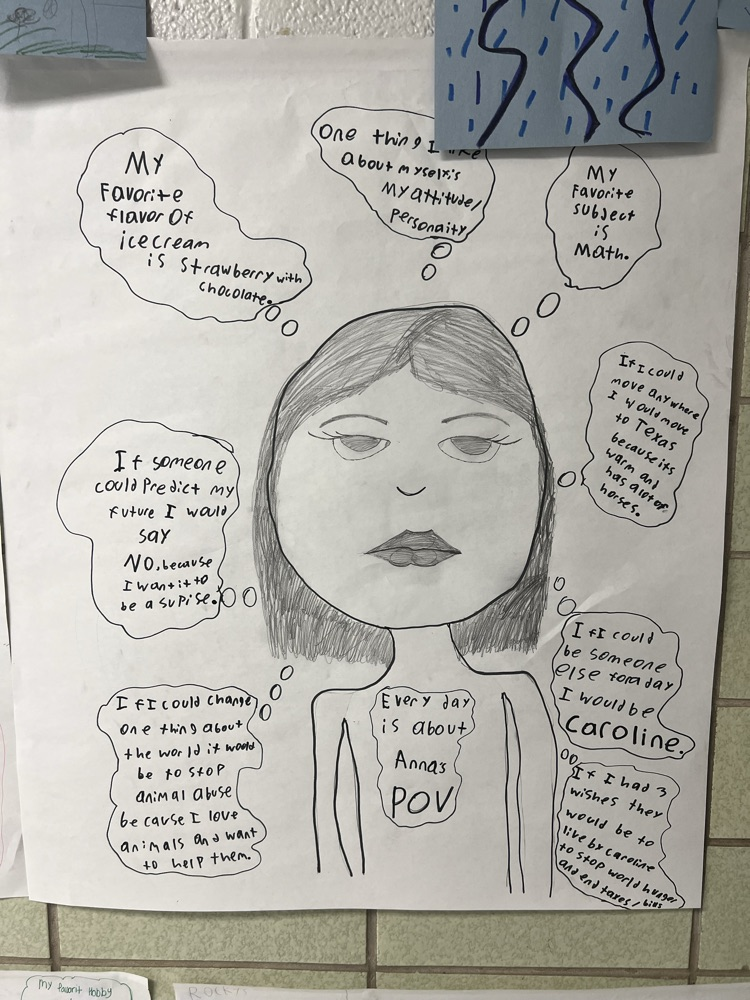 My
Favorite
flavor Of
icecream
is Strawberry with
chocolate.
One thing I like
about myself is
My attitude/
Personaity
My
Favorite
subject
is
Math.
If I could
move anywhere
I would move
to Texas
because its
warm and
has a lot of
horses.
If someone
could Predict my
future I would
say
NO, because
I want it to
be a supise.
If I could
be someone
else for a day
I would be
Caroline.
If I could change
one thing about
the world it would
be to stop
animal abuse
because I love
animals and want
to help them.
Every day
is about
Annas
POV
If I had 3
wishes they
would be to
live by caroline
to stop world hunger
and end taxes / bills
My favorit Hobby